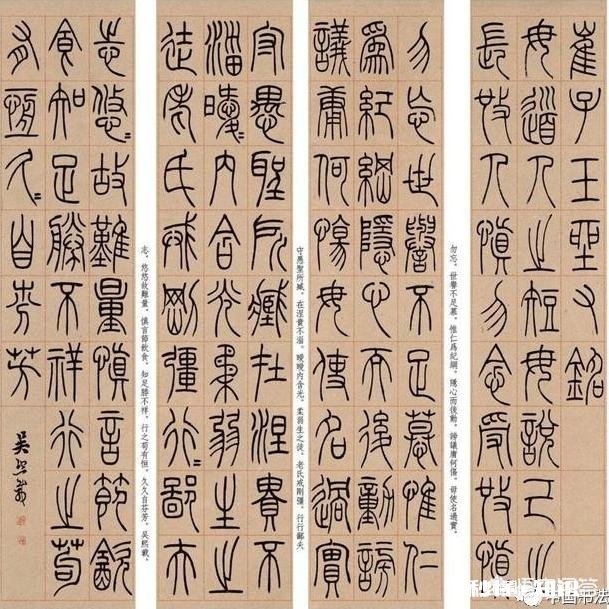 崔子玉坐右銘
毋道人之短毋說己之
長施人慎勿念受施慎
勿忘。世譽不足慕，惟仁爲紀綱。隱心而後動，謗議庸何傷。毋使名過實，
勿忘世譽不足慕惟仁
爲紀綱隱心而後動謗
議庸何傷毋使名過實
守愚聖所臧。在涅貴不淄，曖曖內含光。柔弱生之徒，老氏戒剛彊。行行鄙夫
守愚聖所臧在涅貴不
淄曖〻內含光柔弱生之
徒老氏戒剛彊行〻鄙夫
志，悠悠故難量。慎言節飲食，知足勝不祥。行之苟有恒，久久自芬芳。吳熙載。
志悠〻故難量慎言節飲
食知足勝不祥行之苟
有恆久〻自芬芳
吳熙載
中国书法